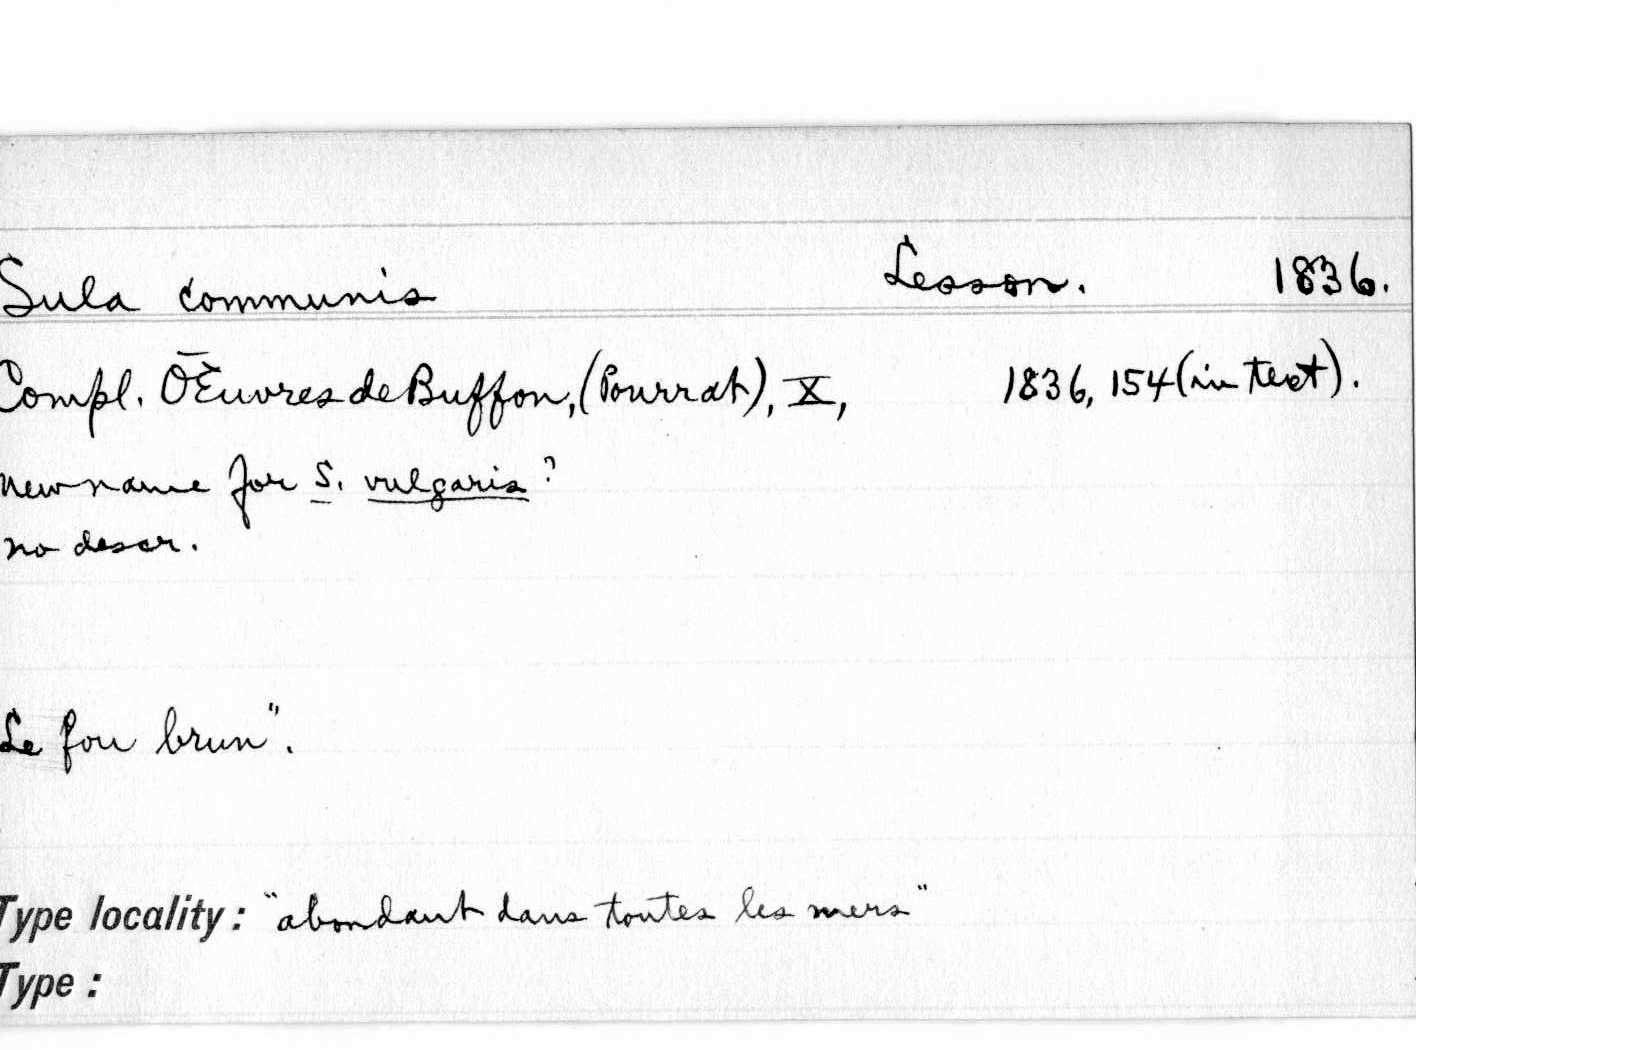 Sula communis Lesson. 1836.
Compl. OEuvres de Buffon, (Pourrat), X, 1836, 154 (in text).
new name for S. vulgaris?
no descr.
Le fou brun".
Type locality: "abondant dans toutes les mers"
Type: